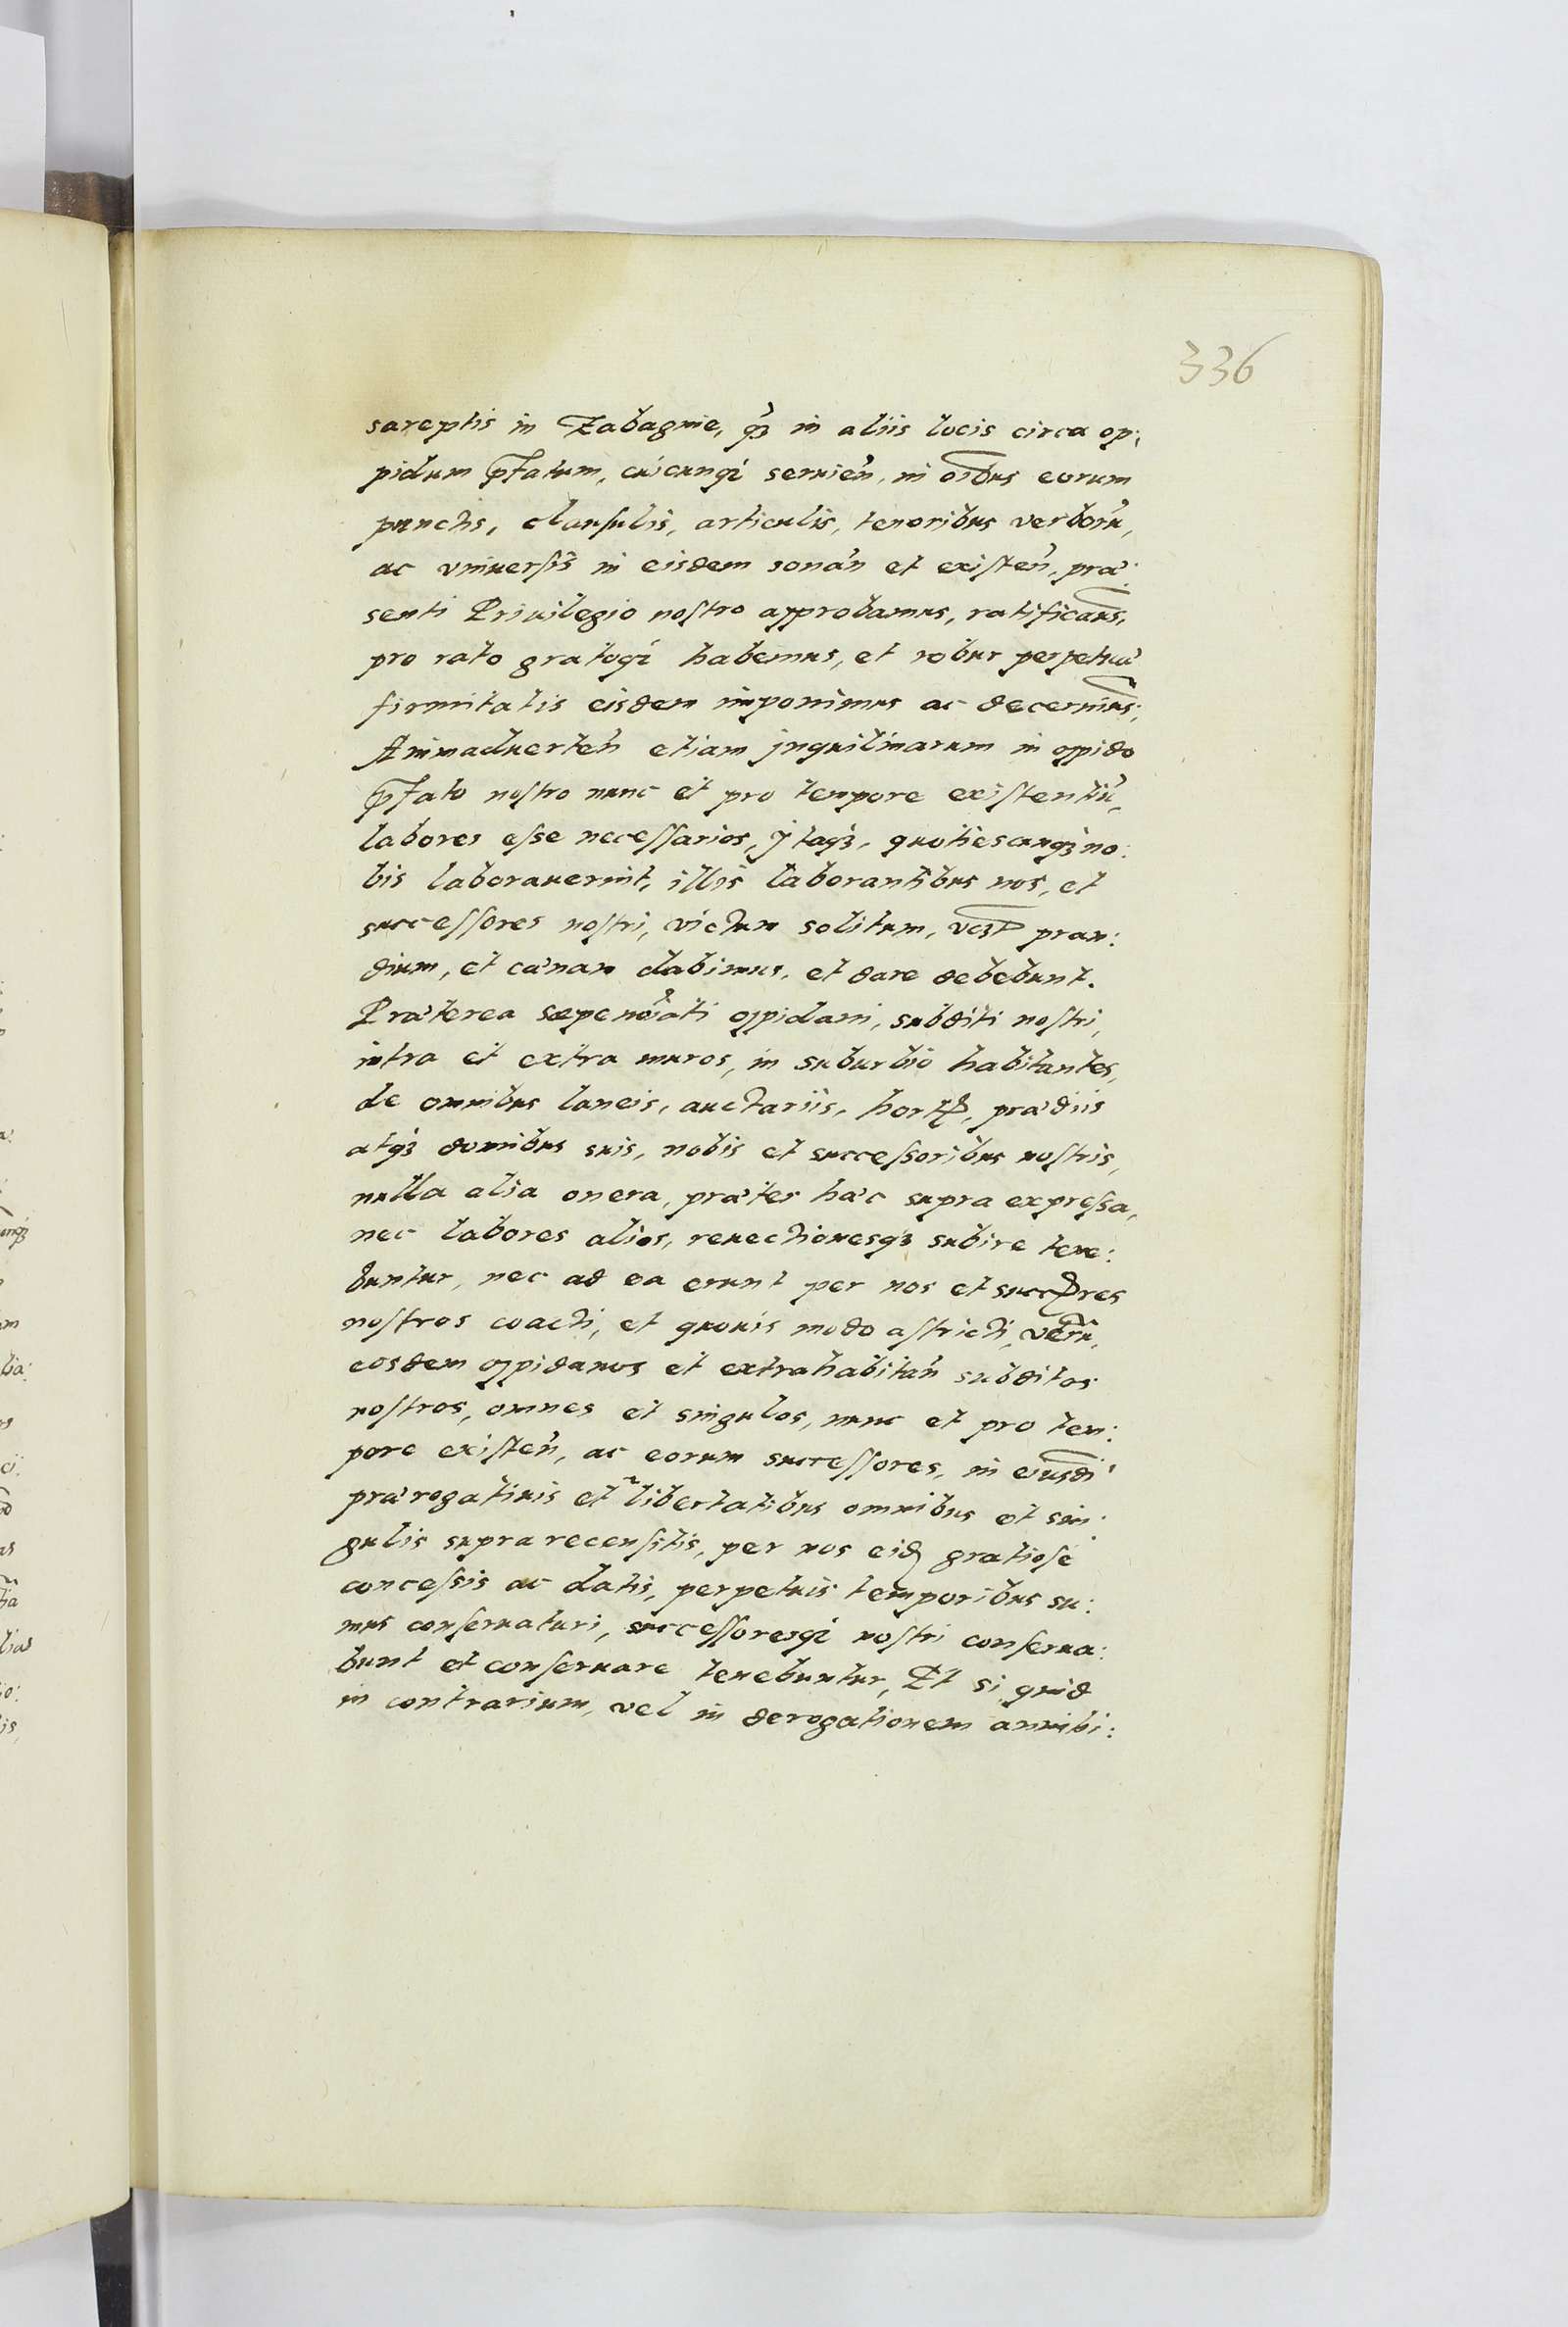 336
sareptis in Zabagnie, qꝫ in aliis locis circa op:
pidum p̄fatum, cuicunqꝫ seruien̄, in oīb9 eorum
punctis, clausulis, articulis, tenoribus verborū,
ac vniuersis in eisdem sonan̄ et existen̄, præ:
senti Priuilegio nostro approbamus, ratificam̄us,
pro rato gratoqꝫ habemus, et robur perpetuæ
firmitatis eisdem imponimus ac decernim̄us;
Animaduerten̄ etiam jnquilinarum in oppido
p̄fato nostro nunc et pro tempore existentiū,
labores esse necessarios, jtaqꝫ, quotiescunqꝫ no:
bis laborauerint, illis laborantibus nos, et
successores nostri, victum solitum, vcꝫ pran:
dium, et cænam dabimus, et dare debebunt.
Præterea sæpenoīati oppidani, subditi nostri,
intra et extra muros, in suburbio habitantes,
de omnibus laneis, auctariis, hortꝭ, prædiis
atqꝫ domibus suis, nobis et successoribus nostris,
nulla alia onera, præter hæc supra expressa,
nec labores alios, reuectionesqꝫ subire tene:
buntur, nec ad ea erunt per nos et succꝑres
nostros coacti, et quouis modo astricti, verū,
eosdem oppidanos et extra habitan̄ subditos
nostros, omnes et singulos, nunc et pro tem:
pore existen̄, ac eorum successores, in eiusdi
prærogatiuis et libertatibus omnibus et sin:
gulis supra recensitis, per nos eisd gratiose
concessis ac datis, perpetuis temporibus su:
mus conseruaturi, successoresqꝫ nostri conserua:
bunt et conseruare tenebuntur, Et si quid
in contrarium, vel in derogationem annihi: